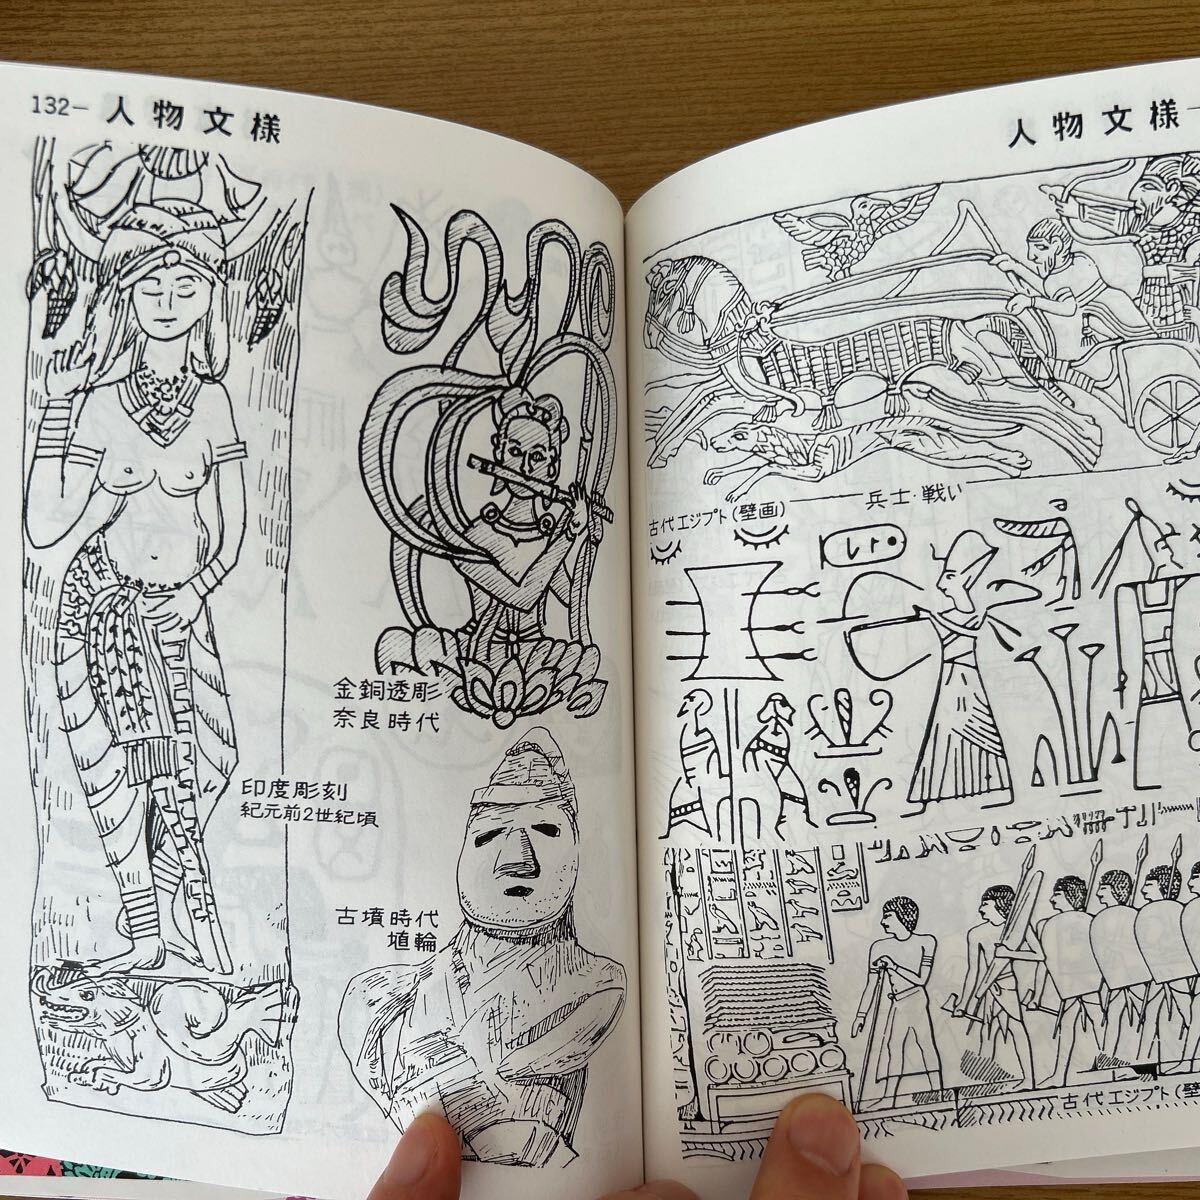 132－人物文様
金銅透彫
奈良時代
印度彫刻
紀元前2世紀頃
古墳時代
埴輪
人物文様－
兵士・戦い
古代エジプト(壁画)
古代エジプト(壁